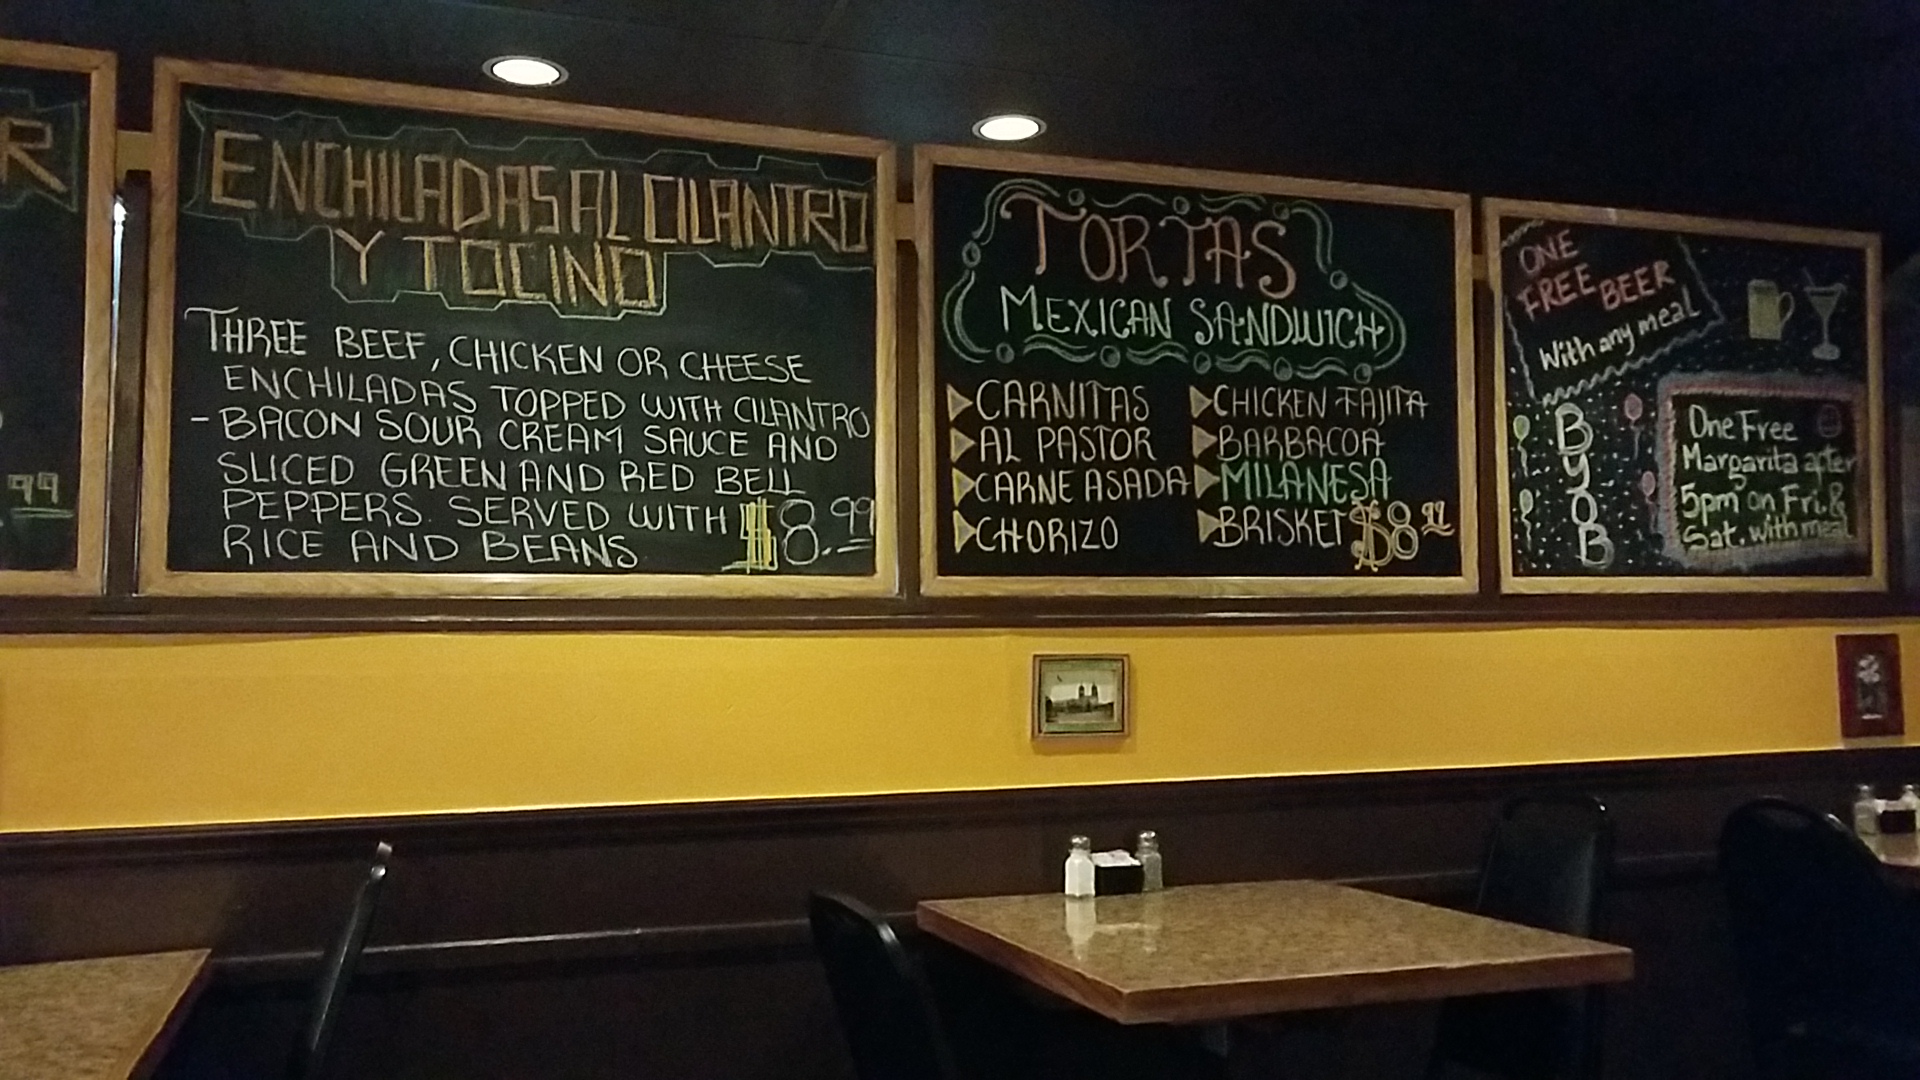 R
.99
ENCHILADAS AL CILANTRO
Y TOCINO
THREE BEEF, CHICKEN OR CHEESE
ENCHILADAS TOPPED WITH CILANTRO
- BACON SOUR CREAM SAUCE AND
SLICED GREEN AND RED BELL
PEPPERS. SERVED WITH
RICE AND BEANS
$8.99
TORTAS
MEXICAN SANDWICH
CARNITAS
AL PASTOR
CARNE ASADA
CHORIZO
CHICKEN FAJITA
BARBACOA
MILANESA
BRISKET
$8.99
ONE
FREE BEER
With any meal
BYOB
One Free
Margarita after
5pm on Fri. &
Sat. with meal